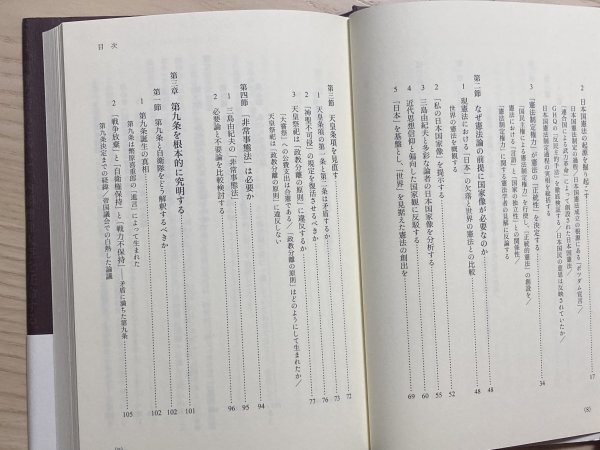 2 日本国憲法の起源を掘り起こす
日本国憲法の起草と成立の根源にある「ポツダム宣言」／
「連合国による武力革命」によって創設された日本国憲法／
GHQの「反民主的手法」を徹底検証する／日本国民の意思は反映されていたか／
日本国憲法制定過程の真相を総括する
17
3 「憲法制定権力」が憲法の「正統性」を決定する
「国民主権による憲法制定権力」を行使し、「正統的憲法」の創設を／
憲法における「国語」と「国家の独立性」との関係性／
「憲法制定権力」に関する憲法学者の見解に反論する
34
第二節 なぜ憲法論の前提に国家像が必要なのか 48
1 現憲法における「日本」の欠落と世界の憲法との比較 48
世界の憲法を概観する
2 「私の日本国家像」を提示する 52
3 三島由紀夫と多彩な論者の日本国家像を分析する 55
4 近代思想信仰と偏向した国家観に反駁する 60
5 「日本」を基盤とし、「世界」を見据えた憲法の創出を 69
(8)
目次
第三節 天皇条項を見直す 72
1 天皇条項の第一条と第二条は矛盾するか 73
2 「神聖不可侵」の規定を復活させるべきか 76
3 天皇祭祀は「政教分離の原則」に違反するか 77
「大嘗祭」への公費支出は合憲である／「政教分離の原則」はどのようにして生まれたか／
天皇祭祀は「政教分離の原則」に違反しない
第四節 「非常事態法」は必要か 94
1 三島由紀夫の「非常事態法」 95
2 必要論と不要論を比較検討する 96
第三章 第九条を根本的に究明する 101
第一節 第九条と自衛隊をどう解釈するべきか 102
1 第九条誕生の真相 102
第九条は幣原喜重郎の「進言」によって生まれた
2 「戦争放棄」と「自衛権保持」と「戦力不保持」——矛盾に満ちた第九条 105
第九条決定までの経緯／帝国議会での白熱した論議